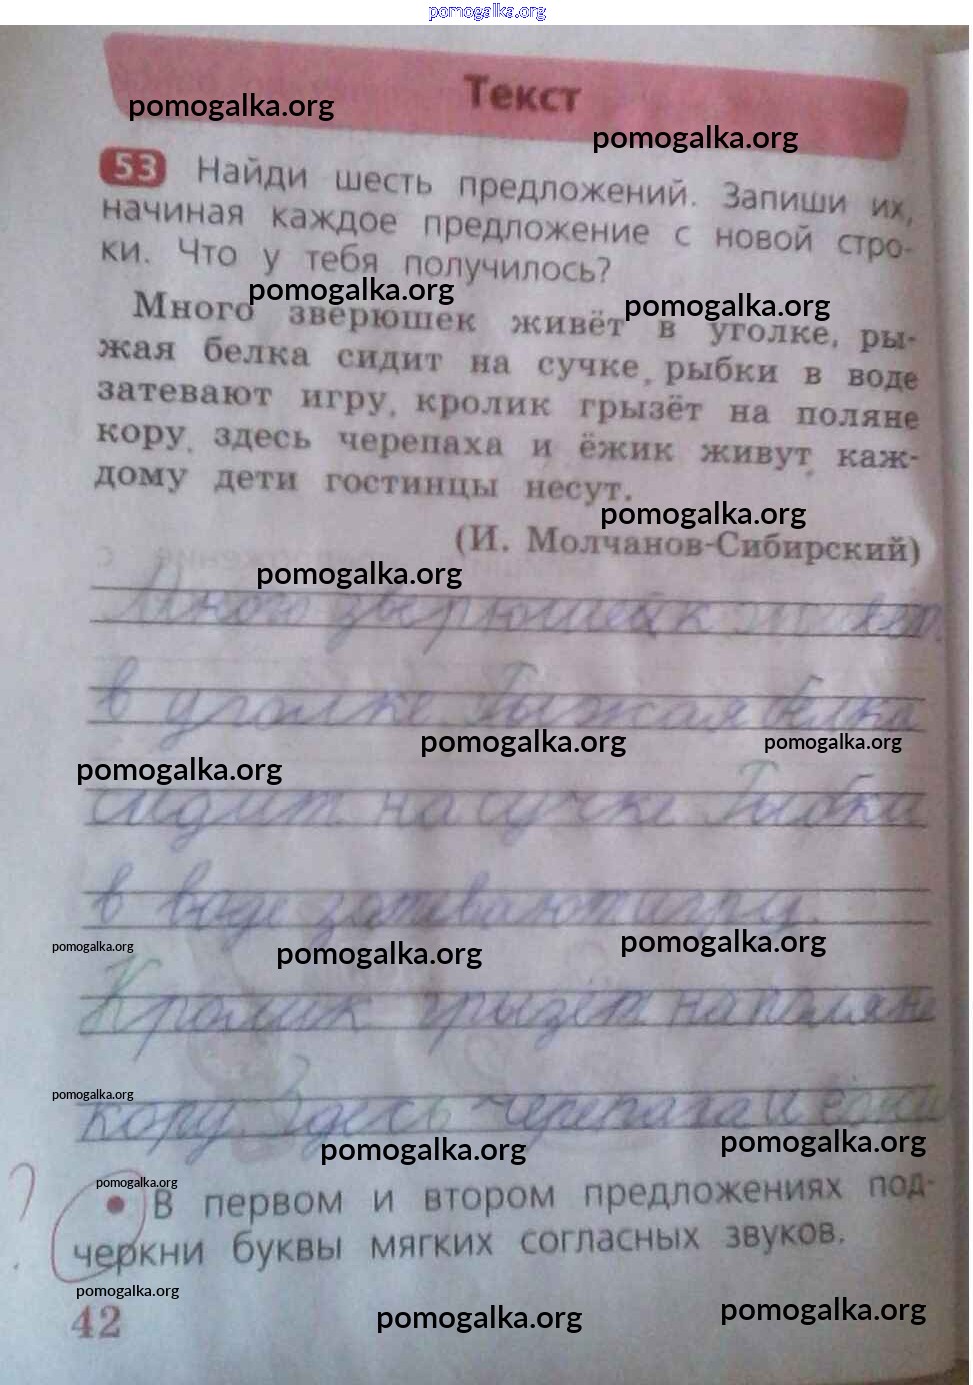 pomogalka.org
Текст
pomogalka.org
pomogalka.org
53 Найди шесть предложений. Запиши их,
начиная каждое предложение с новой стро-
ки. Что у тебя получилось?
pomogalka.org
pomogalka.org
Много зверюшек живёт в уголке, ры-
жая белка сидит на сучке, рыбки в воде
затевают игру, кролик грызёт на поляне
кору, здесь черепаха и ёжик живут, каж-
дому дети гостинцы несут.
pomogalka.org
(И. Молчанов-Сибирский)
pomogalka.org
Много зверюшек живёт
в уголке. Рыжая белка
pomogalka.org
pomogalka.org
pomogalka.org
сидит на сучке. Рыбки
в воде затевают игру.
pomogalka.org
pomogalka.org
pomogalka.org
Кролик грызёт на поляне
pomogalka.org
кору. Здесь черепаха и
pomogalka.org
pomogalka.org
pomogalka.org
? • В первом и втором предложениях под-
черкни буквы мягких согласных звуков.
pomogalka.org
42
pomogalka.org
pomogalka.org